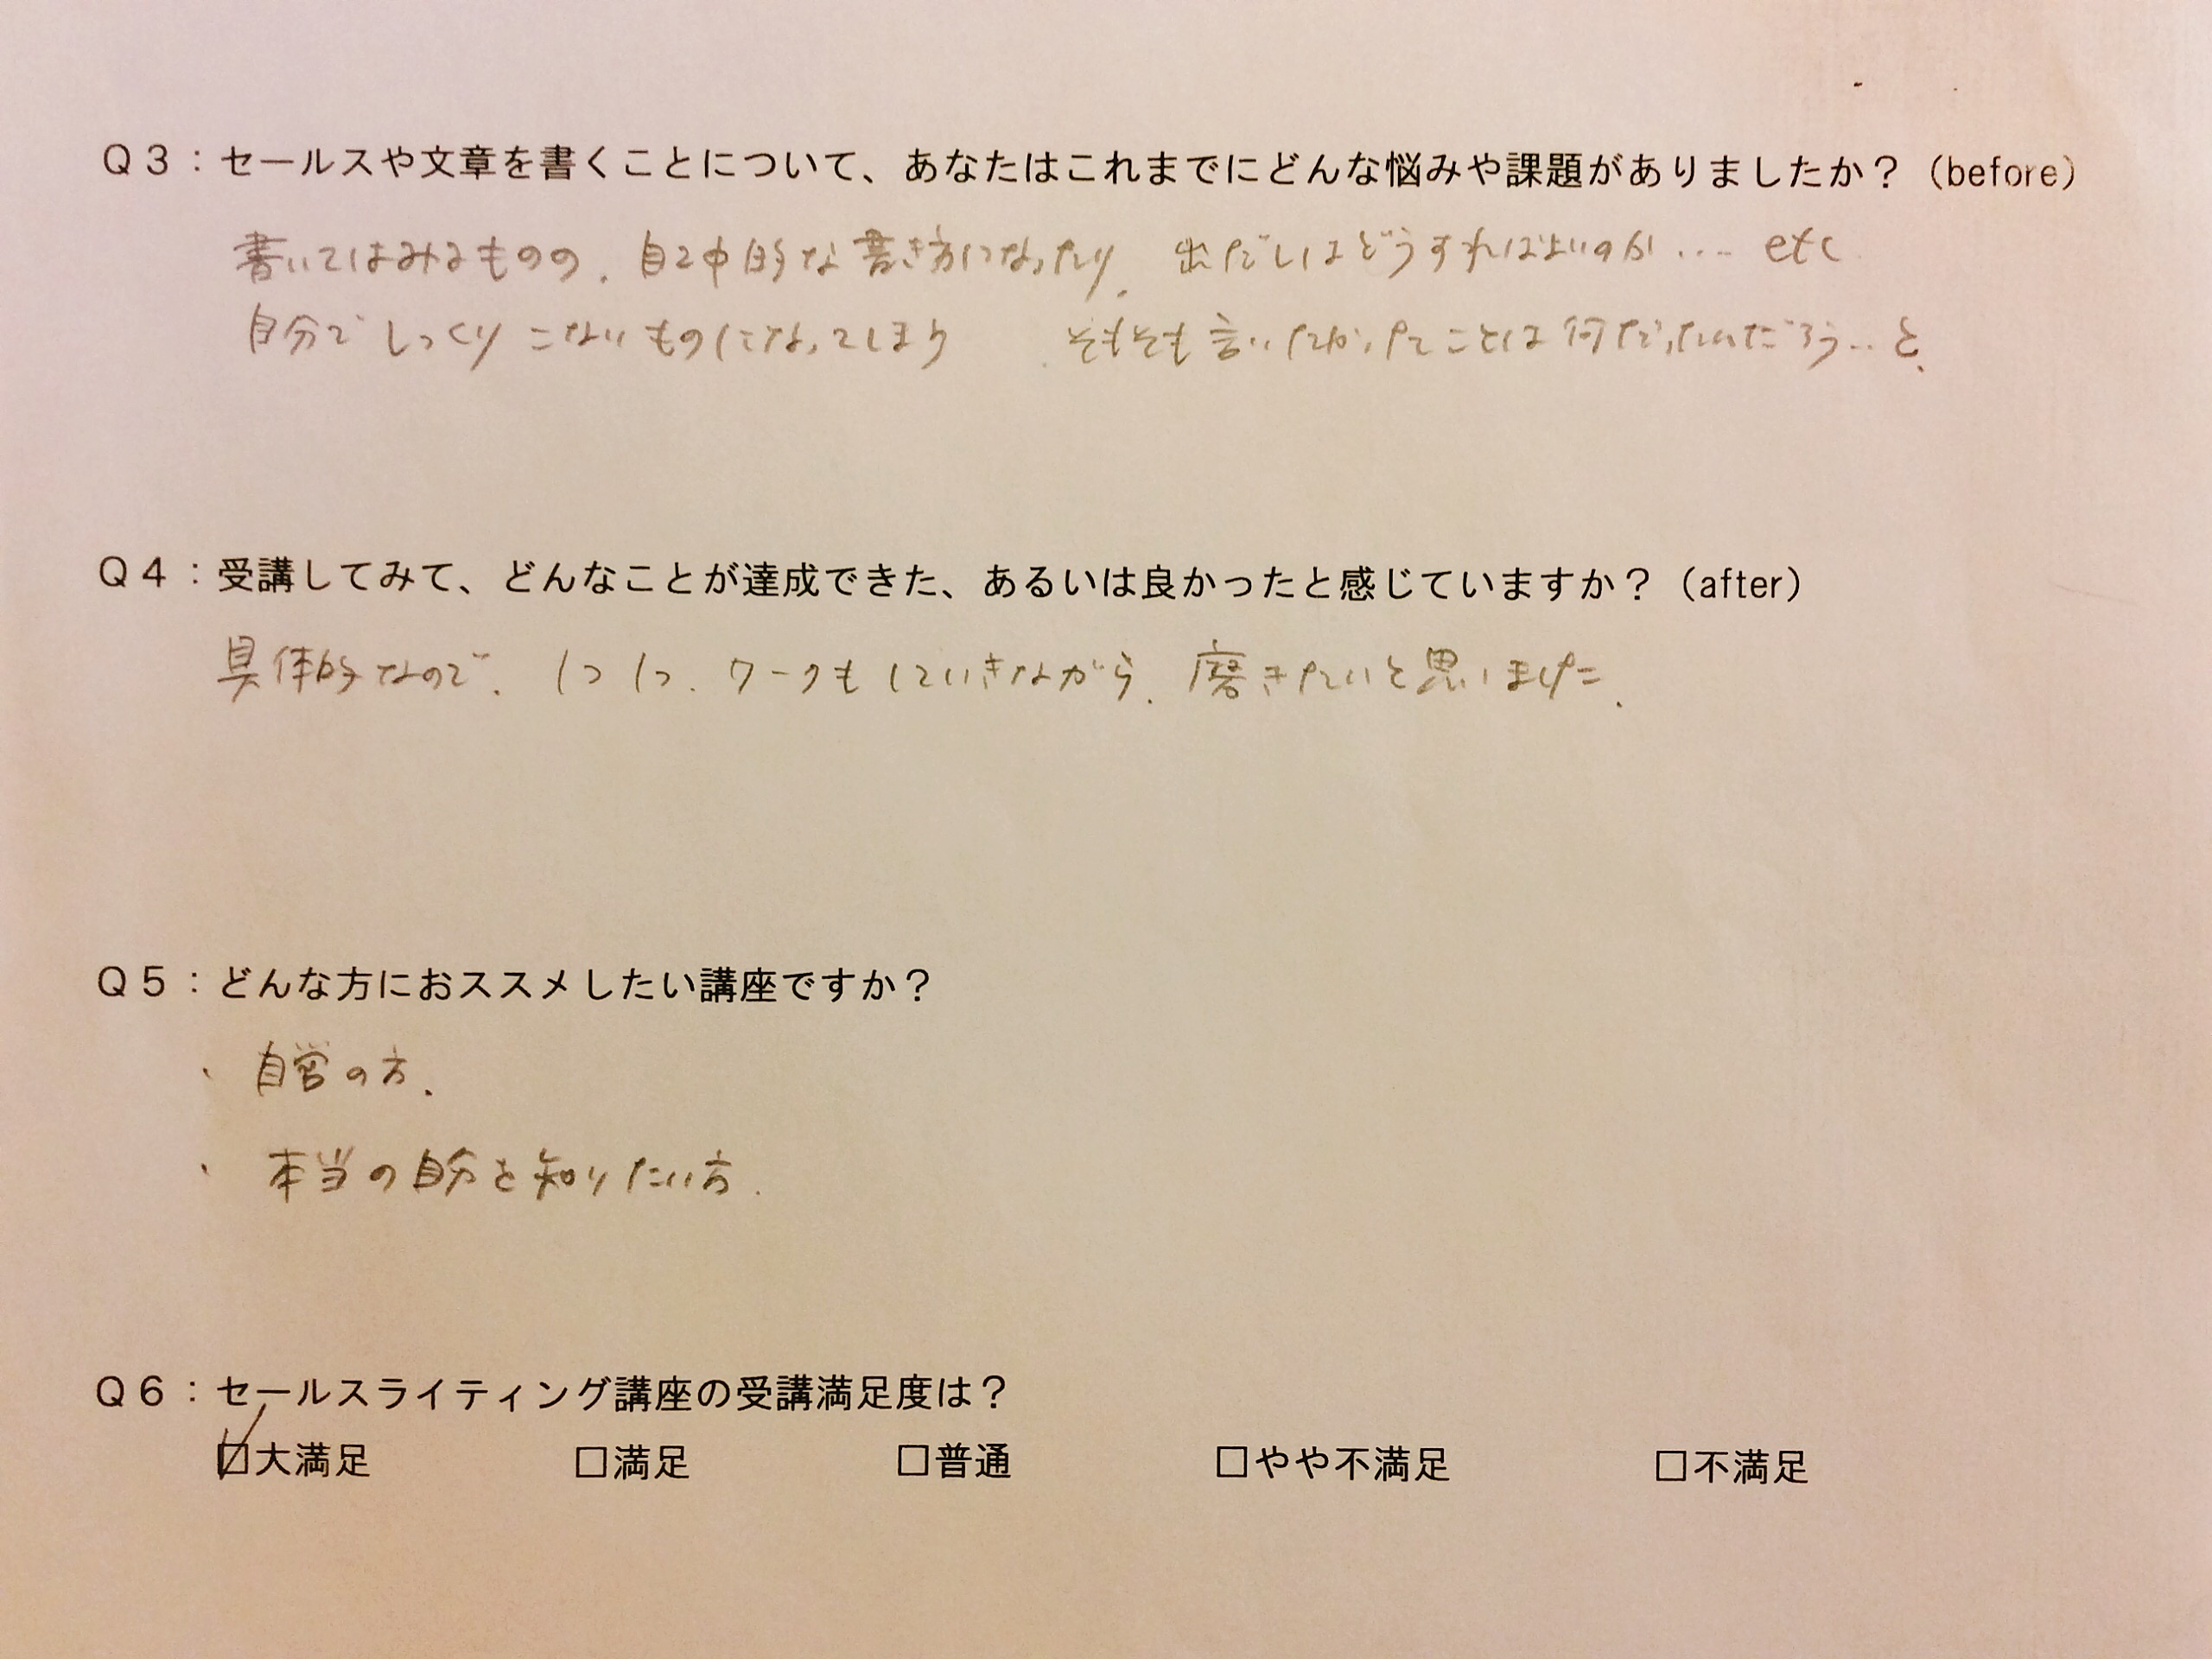 Q3：セールスや文章を書くことについて、あなたはこれまでにどんな悩みや課題がありましたか？（before）
書いてはみるものの、自己中的な書き方になったり、出だしはどうすればよいのか…. etc
自分でしっくりこないものになってしまり、そもそも言いたかったことは何だったんだろう…と、
Q4：受講してみて、どんなことが達成できた、あるいは良かったと感じていますか？（after）
具体的なので、1つ1つ、ワークもしていきながら、磨きたいと思いました。
Q5：どんな方におススメしたい講座ですか？
・自営の方.
・本当の自分を知りたい方.
Q6：セールスライティング講座の受講満足度は？
☑大満足 □満足 □普通 □やや不満足 □不満足